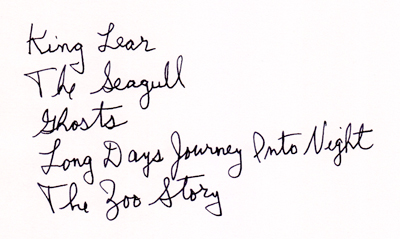 King Lear
The Seagull
Ghosts
Long Days Journey Into Night
The Zoo Story